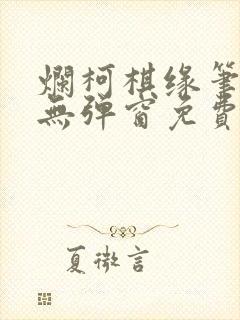 爛柯棋缘筆
無彈窗免費
夏微言